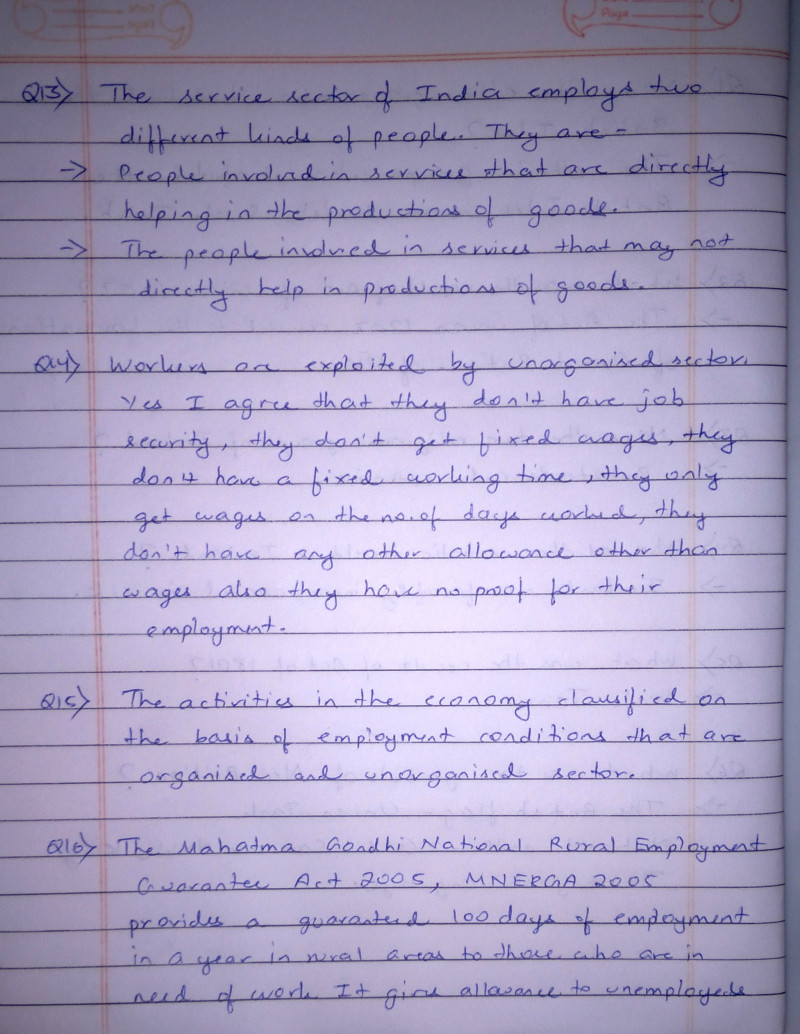 Page
Q13> The service sector of India employs two
different kinds of people. They are -
-> People involved in services that are directly
helping in the productions of goods.
-> The people involved in services that may not
directly help in productions of goods.
Q14> Workers are exploited by unorganised sector.
Yes I agree that they don't have job
security, they don't get fixed wages, they
don't have a fixed working time, they only
get wages on the no. of days worked, they
don't have any other allowance other than
wages also they have no proof for their
employment.
Q15> The activities in the economy classified on
the basis of employment conditions that are
organised and unorganised sector.
Q16> The Mahatma Gandhi National Rural Employment
Guarantee Act 2005, MNERGA 2005
provides a guaranteed 100 days of employment
in a year in rural areas to those who are in
need of work. It gives allowance to unemployeds